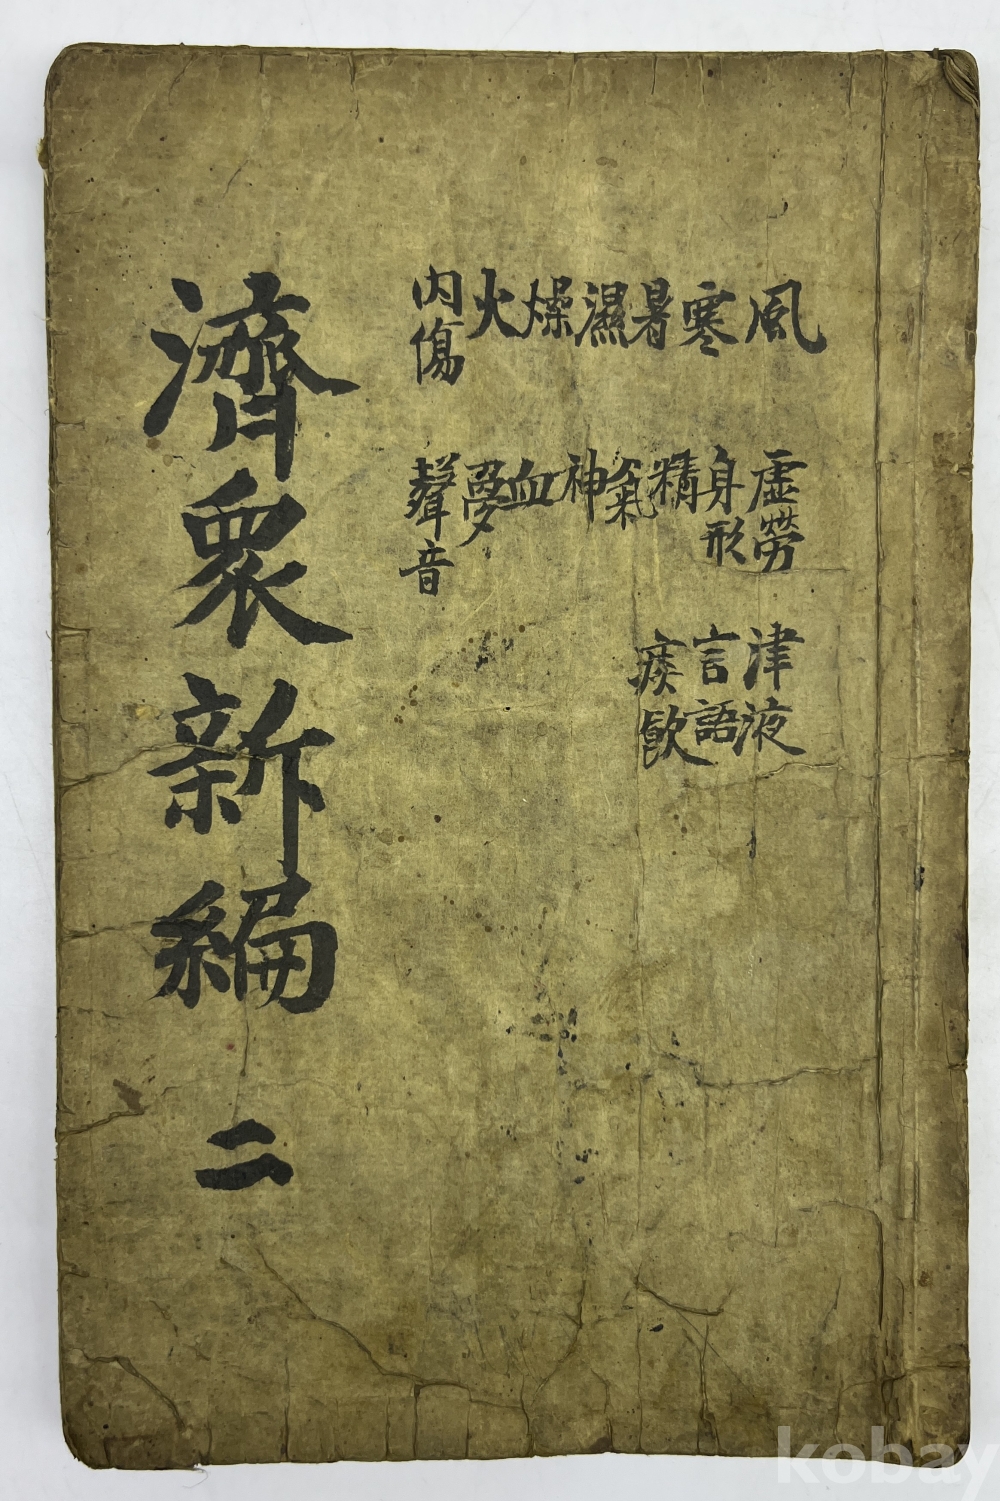 風 寒 暑 濕 燥 火 內傷
虛勞 身形 精 氣 神 血 夢 聲音
津液 言語 痰飮
濟衆新編 二
kobay